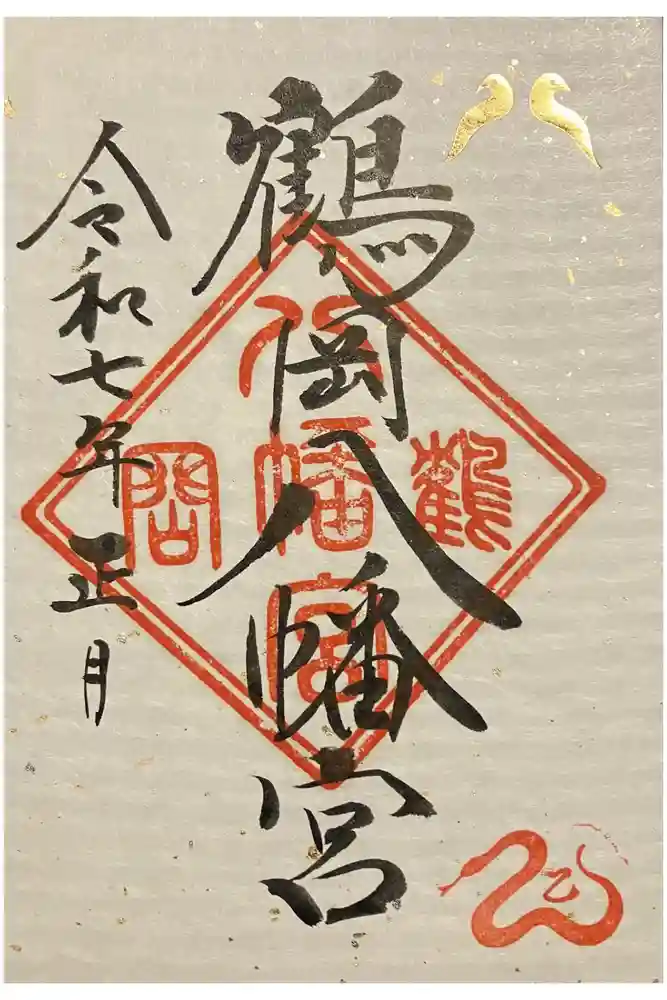 鶴岡八幡宮
令和七年正月
鶴
岡
八
幡
宮
巳